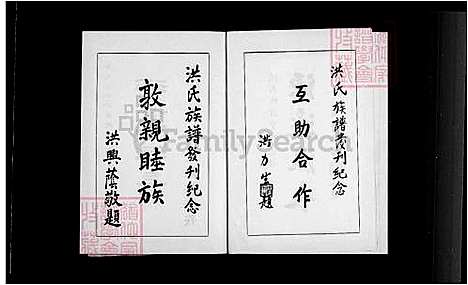 洪氏族譜發刊紀念
互助合作
題
洪氏族譜發刊紀念
敦親睦族
洪興蔭敬題
FamilySearch